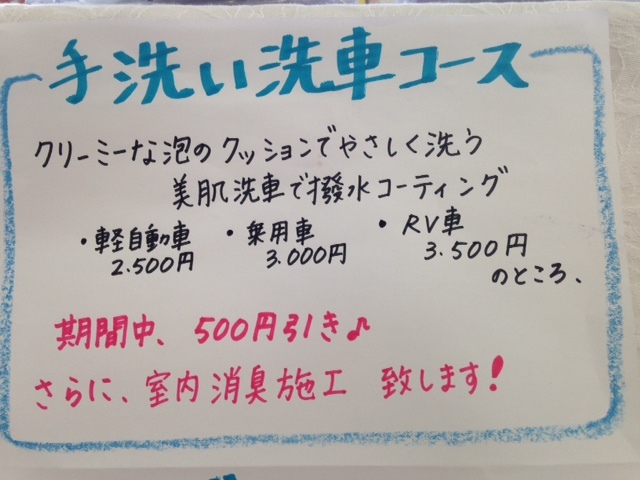 手洗い洗車コース
クリーミーな泡のクッションでやさしく洗う
美肌洗車で撥水コーティング
・軽自動車 ・乗用車 ・RV車
2.500円 3.000円 3.500円
のところ、
期間中、500円引き♪
さらに、室内消臭施工 致します!